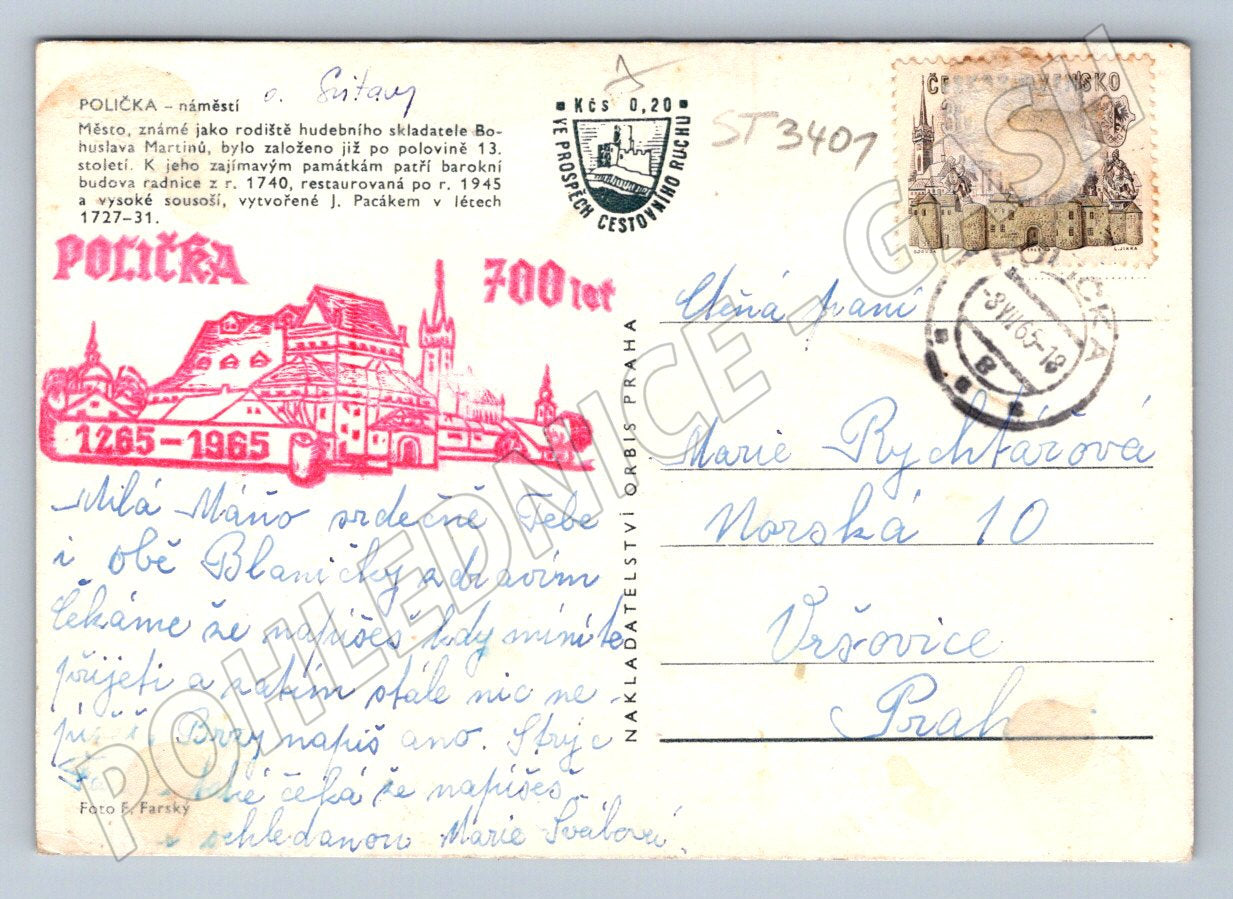 POLIČKA – náměstí
o. Svitavy
Město, známé jako rodiště hudebního skladatele Bo-
huslava Martinů, bylo založeno již po polovině 13.
století. K jeho zajímavým památkám patří barokní
budova radnice z r. 1740, restaurovaná po r. 1945
a vysoké sousoší, vytvořené J. Pacákem v létech
1727–31.
Kčs 0,20
VE PROSPĚCH CESTOVNÍHO RUCHU
ST 3401
ČESKOSLOVENSKO
POLIČKA
-3.VII.65-18
B
POLIČKA 700 let
1265–1965
Milá Máňo srdečně Tebe
i obě Blaničky zdravím
čekáme že napíšeš kdy míníte
přijeti a zatím stále nic ne-
Brzy napiš ano. Strýc
čeká že napíšeš
Marie Švábová
Foto F. Farský
NAKLADATELSTVÍ ORBIS PRAHA
Ctěná paní
Marie Rychtářová
Norská 10
Vršovice
Prah
POHLEDNICE - G